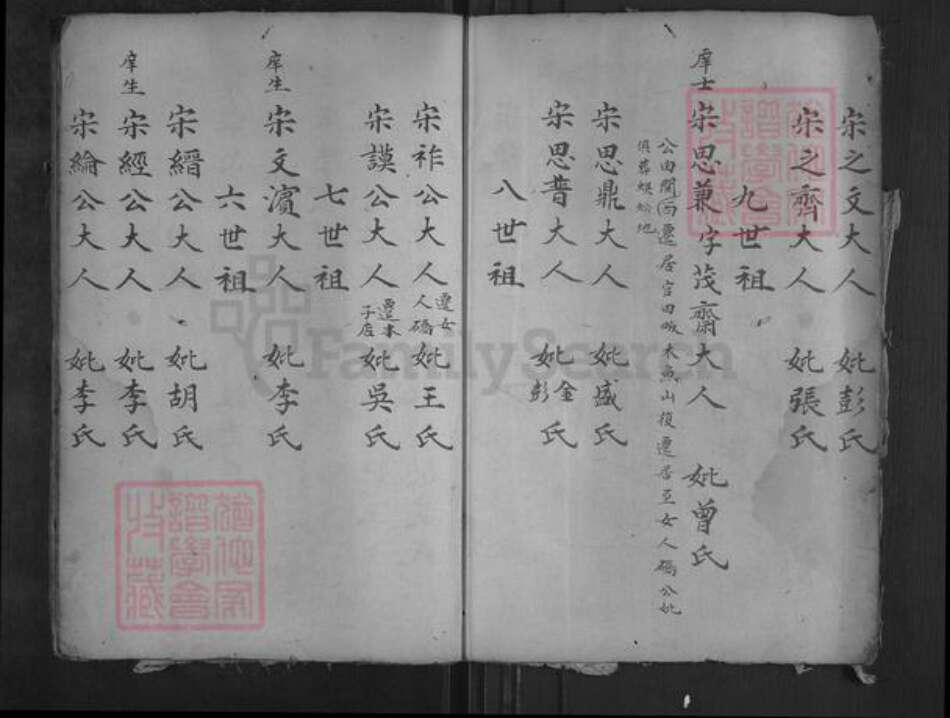 宋之文大人 妣彭氏
宋之齊大人 妣張氏
九世祖
庠士宋思兼字茂齋大人 妣曾氏
公由閣 遷居官田 木魚山復遷居至女人碼公妣
俱葬蜈蚣地
宋思鼎大人 妣盛氏
宋思普大人 妣金彭氏
八世祖
宋祚公大人遷女人碼 妣王氏
宋謨公大人遷車子店 妣吳氏
七世祖
庠生宋文濱大人 妣李氏
六世祖
宋縉公大人 妣胡氏
庠生宋經公大人 妣李氏
宋綸公大人 妣李氏
FamilySearch